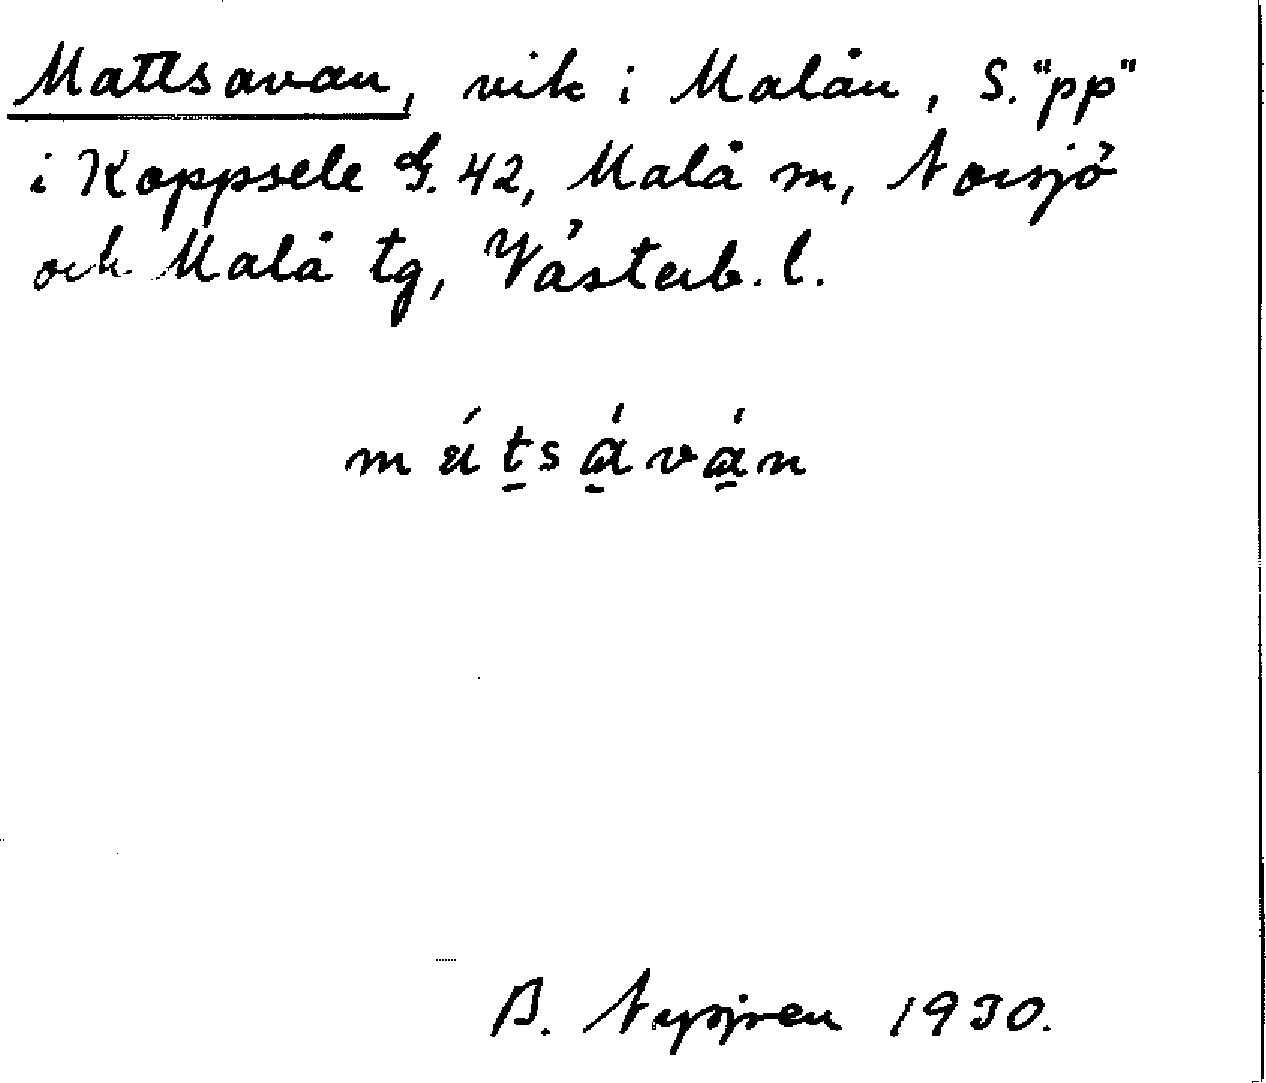 Mattsavan, vik i Malån, S. "pp"
i Koppsele G. 42, Malå m, Norsjö
och Malå tg, Västerb. l.
mátsáván
B. 1930.